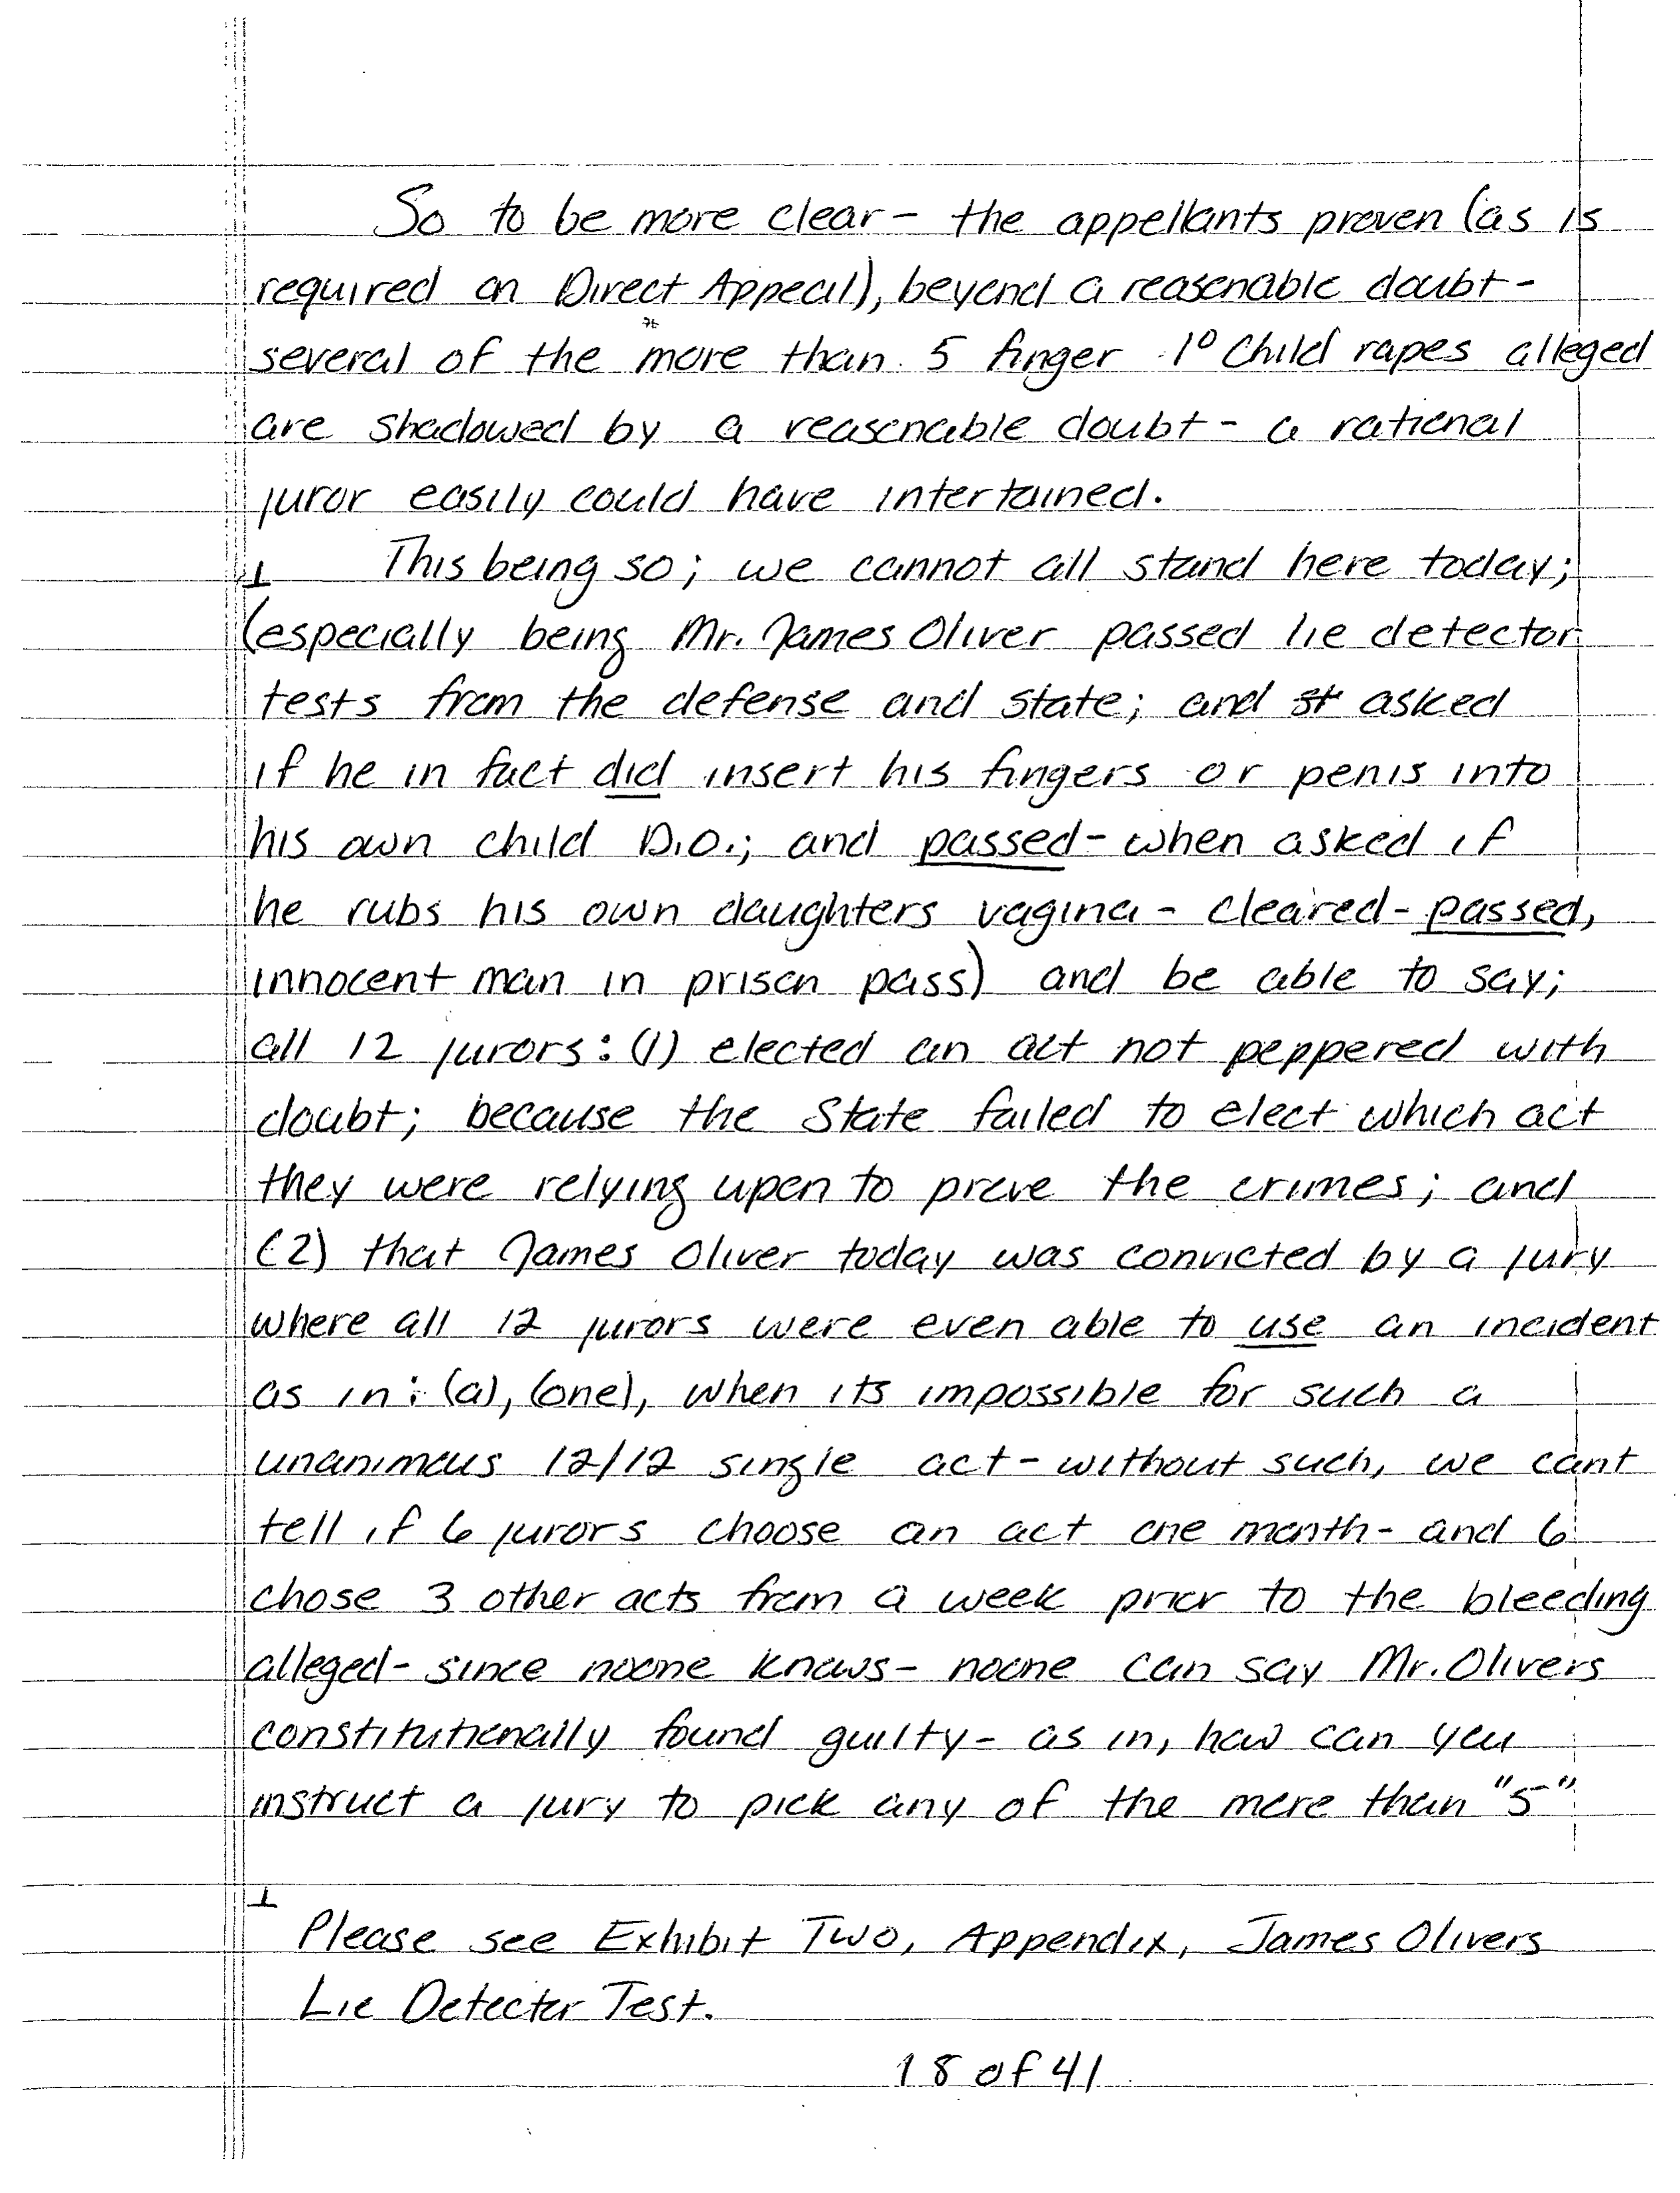 So to be more clear - the appellants proven (as is
required on Direct Appeal), beyond a reasonable doubt -
several of the more than 5 finger 1° Child rapes alleged
are shadowed by a reasonable doubt - a rational
juror easily could have intertained.
1 This being so; we cannot all stand here today;
(especially being Mr. James Oliver passed lie detector
tests from the defense and state; and st asked
if he in fact did insert his fingers or penis into
his own child D.O.; and passed - when asked if
he rubs his own daughters vagina - cleared - passed,
innocent man in prison pass) and be able to say;
all 12 jurors: (1) elected an act not peppered with
doubt; because the State failed to elect which act
they were relying upon to prove the crimes; and
(2) that James Oliver today was convicted by a jury
where all 12 jurors were even able to use an incident
as in: (a), (one), when its impossible for such a
unanimous 12/12 single act - without such, we cant
tell if 6 jurors choose an act one month - and 6
chose 3 other acts from a week prior to the bleeding
alleged - since noone knows - noone can say Mr. Olivers
constitutionally found guilty - as in, how can you
instruct a jury to pick any of the more than "5"
1
Please see Exhibit Two, Appendix, James Olivers
Lie Detector Test.
18 of 41